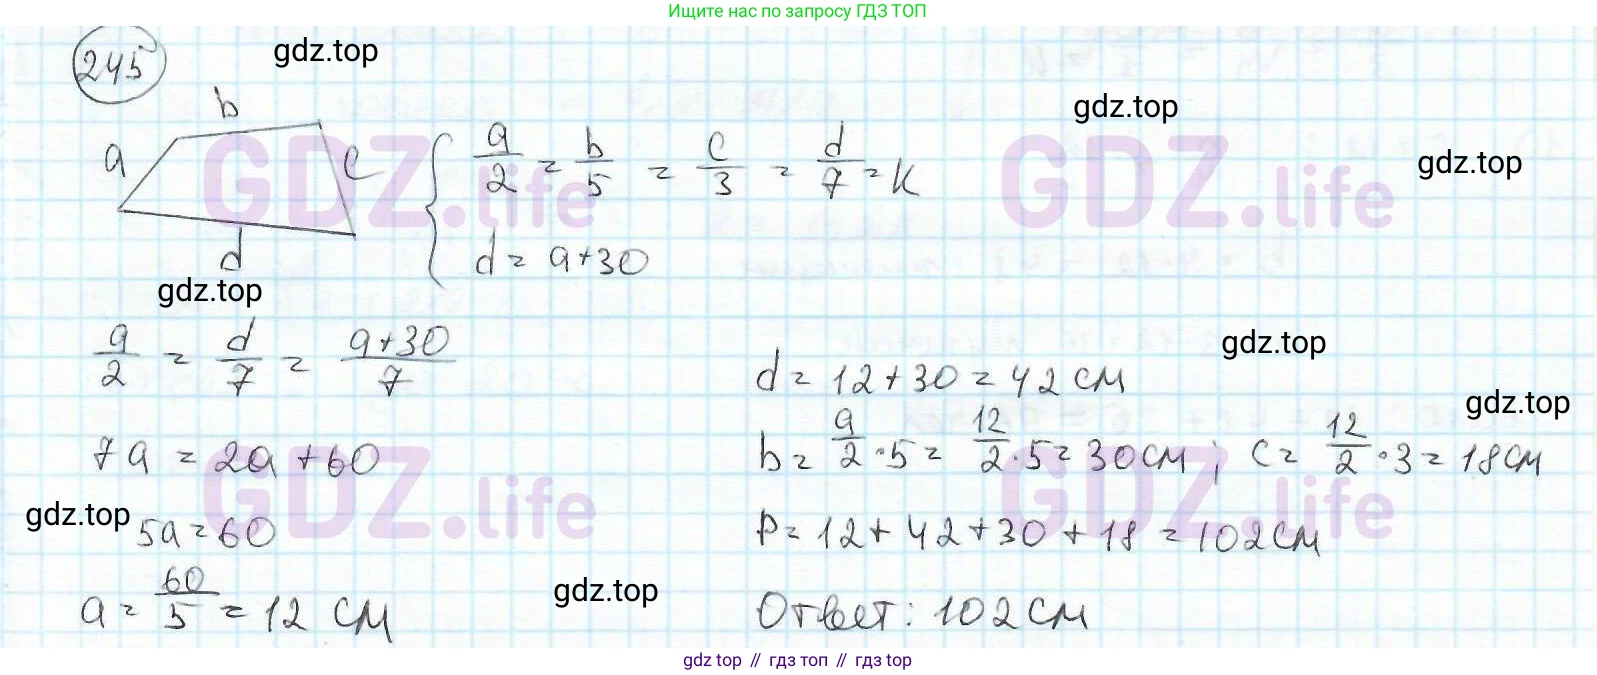 Ищите нас по запросу ГДЗ ТОП
245
gdz.top
gdz.top
gdz.top
b
a
c
d
a/2 = b/5 = c/3 = d/7 = K
d = a+30
GDZ.life
GDZ.life
gdz.top
a/2 = d/7 = (a+30)/7
7a = 2a+60
5a = 60
a = 60/5 = 12 см
gdz.top
gdz.top
gdz.top
gdz.top
d = 12+30 = 42 см
b = a/2 · 5 = 12/2 · 5 = 30 см ; c = 12/2 · 3 = 18 см
P = 12+42+30+18 = 102 см
Ответ: 102 см
GDZ.life
GDZ.life
gdz top // гдз топ // гдз top